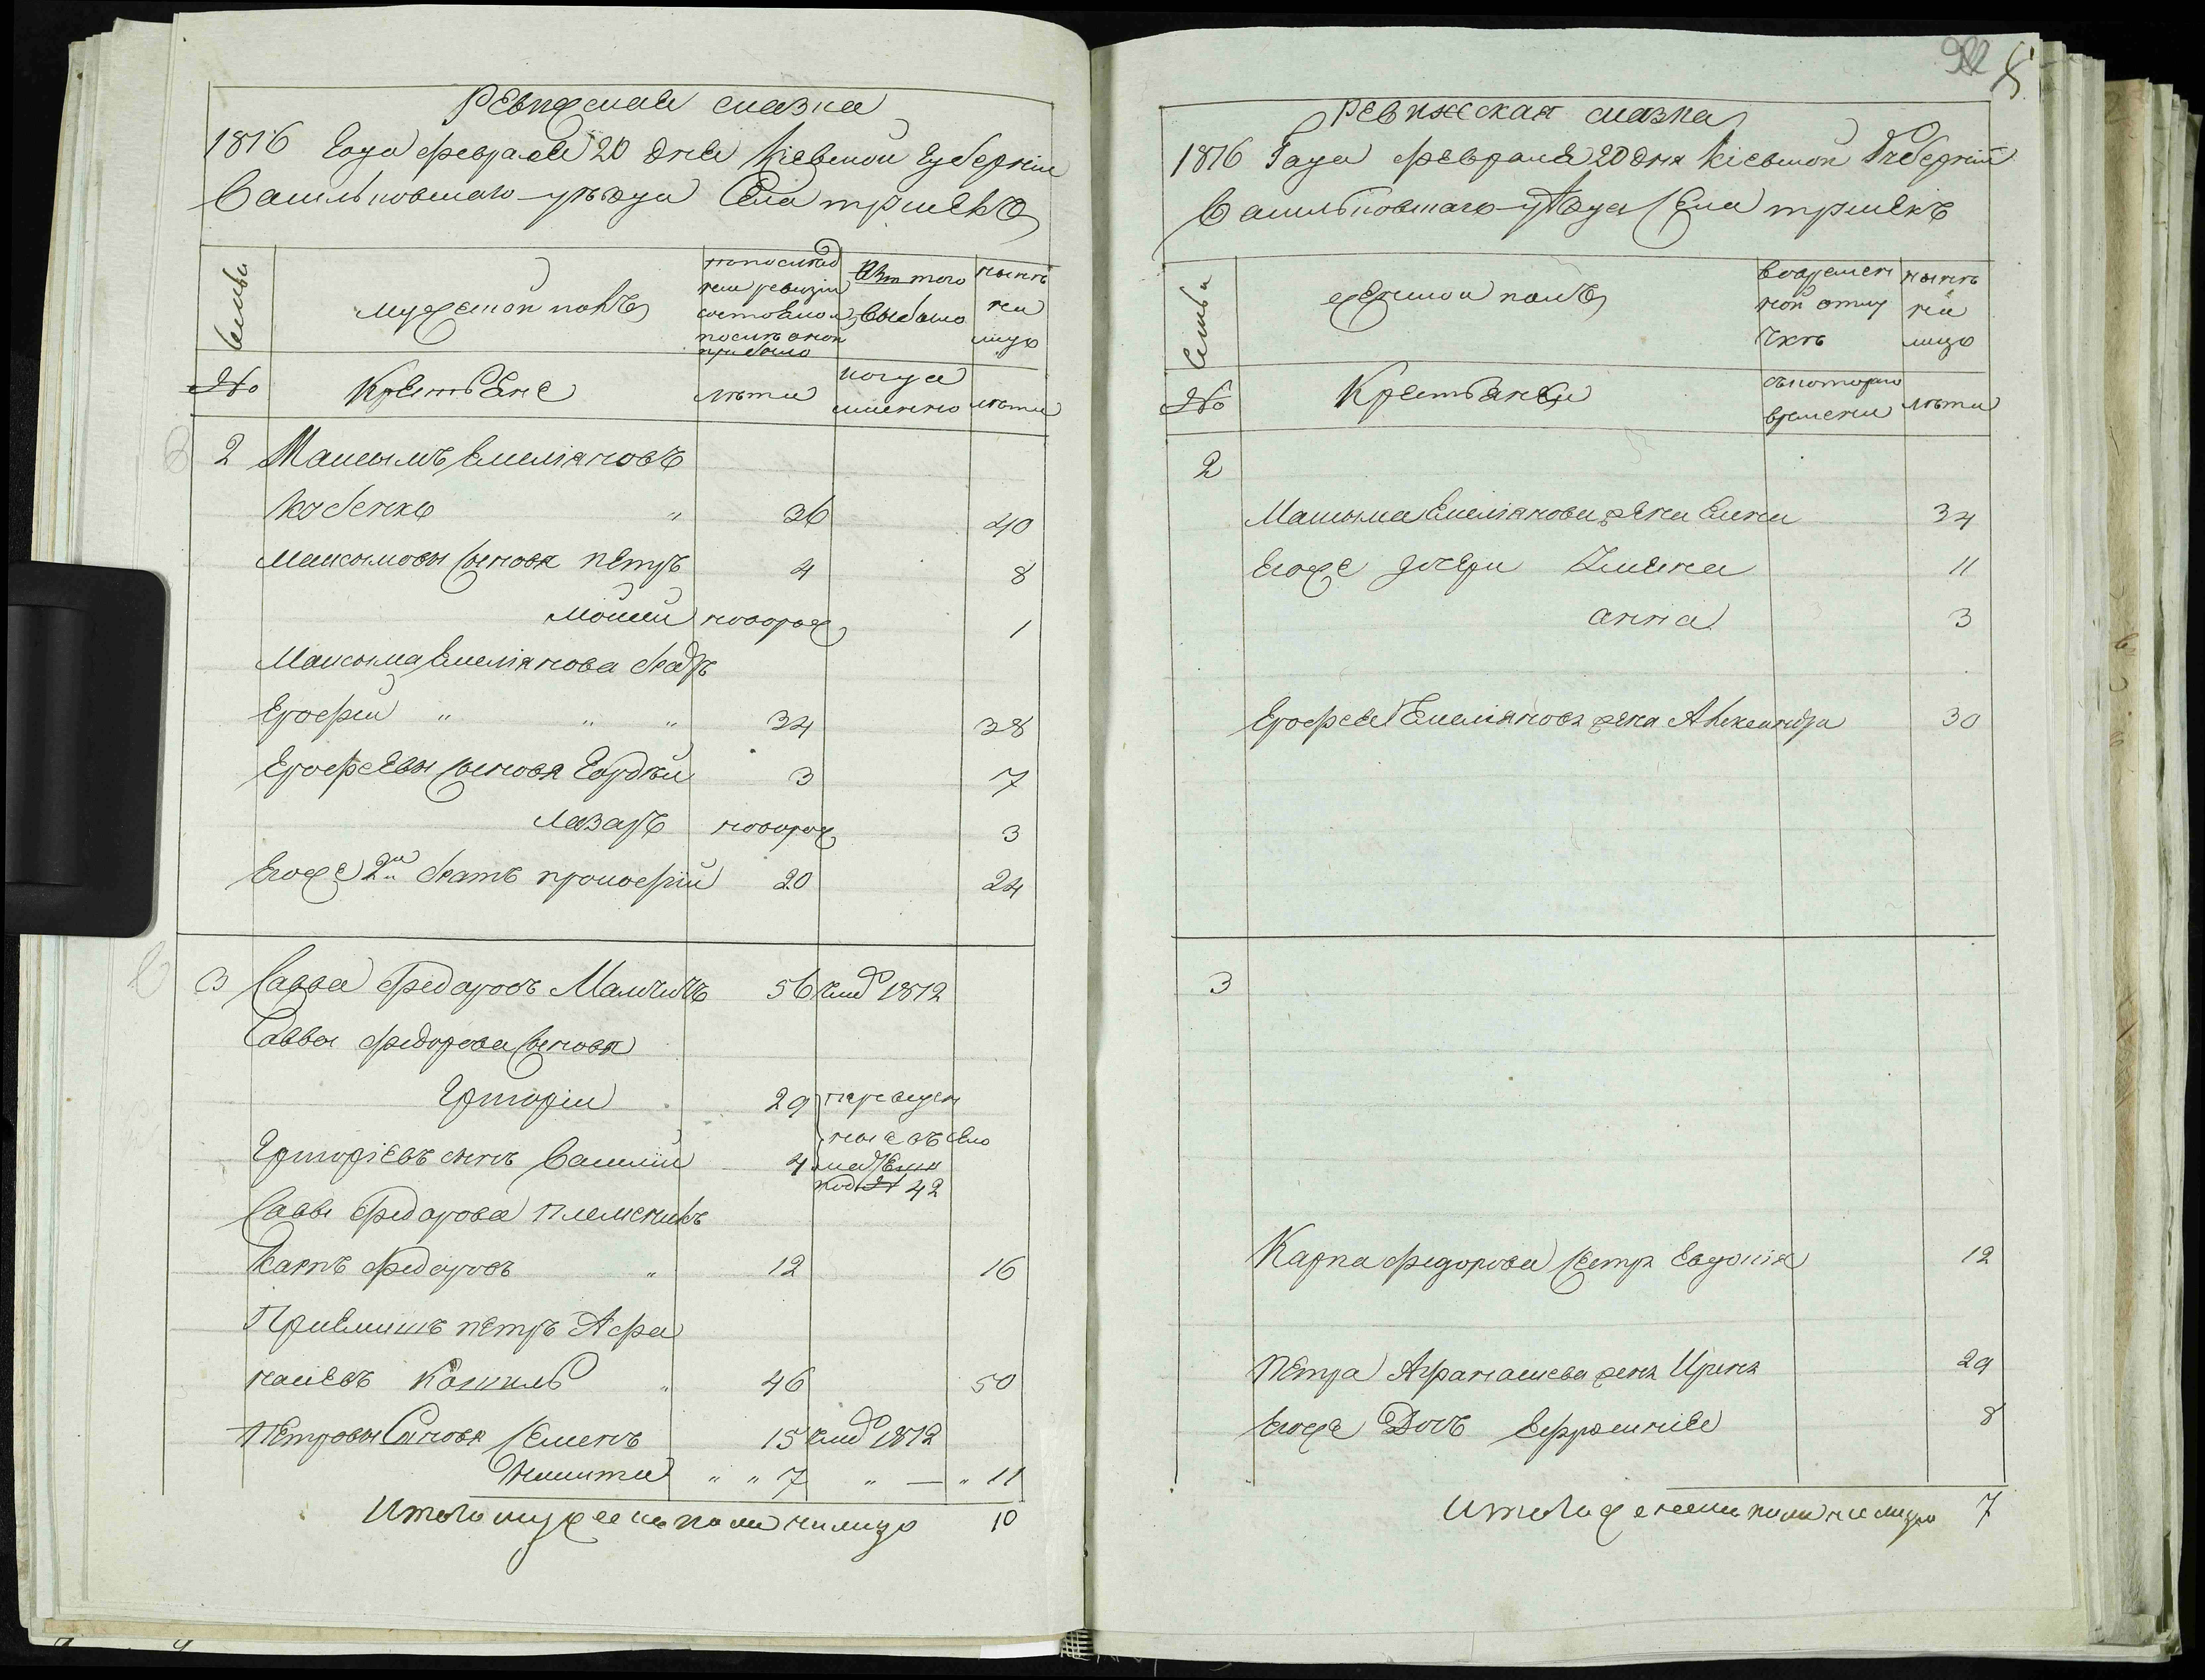 Ревижская сказка
1816 Года февраля 20 дня Кіевской Губерніи
Васильковскаго уѣзда Села
Семьи
мужеской полъ
по послед
ней ревизіи
состояло и
послѣ оной
прибыло
Изъ того
выбыло
нынѣ
на
лицо
№
Крестьяне
лѣта
когда
именно
лѣта
2 Максымъ Емеліяновъ
" 36 40
Максымовы сыновя Петръ 4 8
Мойсей новорож 1
Максыма Емеліянова братъ
Ерофей " " " 34 38
Ерофеевы сыновя Гордѣй 3 7
Лазаръ новорож 3
Егоже 2й братъ Прокофій 20 24
3 Савва Федоровъ 56 умер 1812
Саввы Федорова сыновя
Григорій 29 переведен
ные въ село
Григоріевъ сынъ Василій 4
под № 42
Саввы Федорова племеникъ
Карпъ Федоровъ " 12 16
Приемышъ Петръ Афа
насіевъ " 46 50
Петровы Сыновя Семенъ 15 умер 1812
Никита " " 7 " — " 11
Итого мужеска пола на лицо 10
8
Ревижская сказка
1816 Года февраля 20 дня Кіевской Губерніи
Васильковскаго уѣзда Села
Семьи
женской полъ
во времен
ной отлу
чкѣ
нынѣ
на
лицо
№
Крестьянки
съ котораго
времени
лѣта
2
Максыма Емеліянова жена Елена 34
Егоже дочери 11
анна 3
Ерофея Емеліянова жена Александра 30
3
Карпа Федорова сестра Евдокія 12
Петра Афанасиева жена Ирина 29
Егоже Дочь Ефросинія 8
Итого женска пола на лицо 7